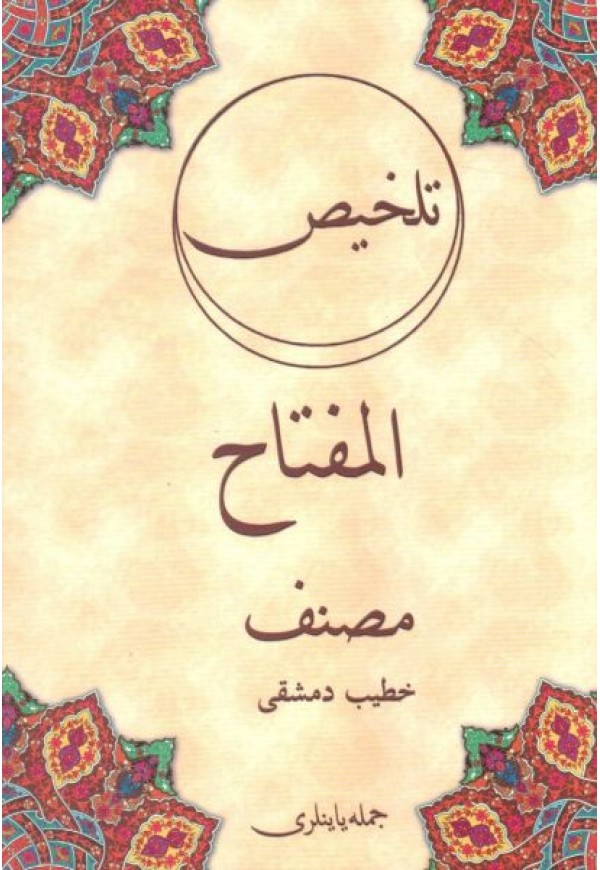 تلخيص
المفتاح
مصنف
خطيب دمشقى
جمله ياينلرى